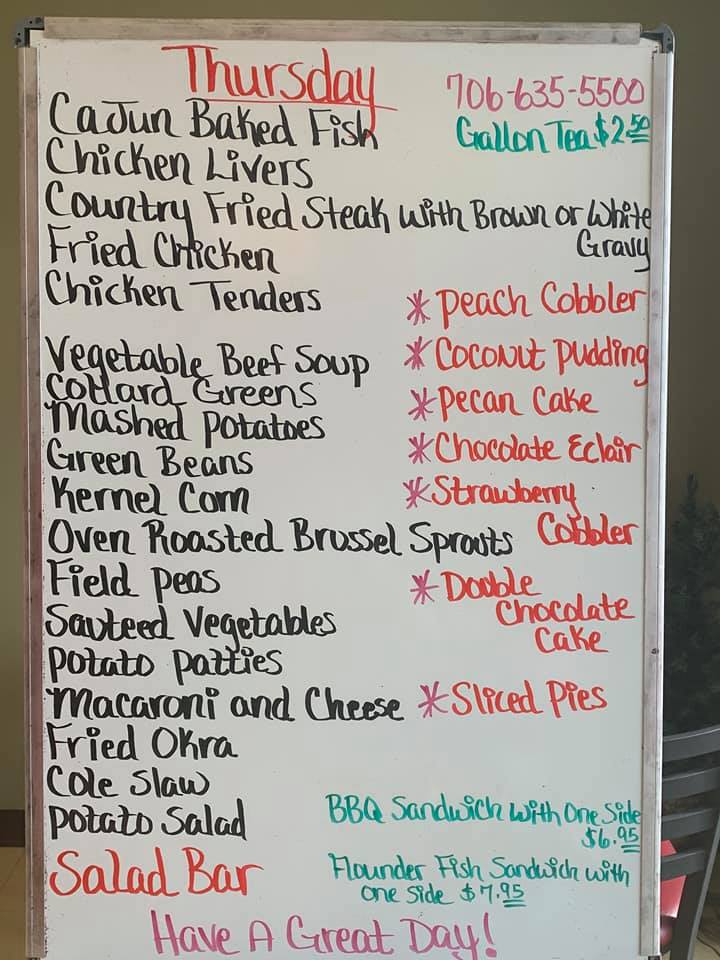 Thursday
706-635-5500
Gallon Tea $2.50
Cajun Baked Fish
Chicken Livers
Country Fried Steak with Brown or White
Gravy
Fried Chicken
Chicken Tenders
* Peach Cobbler
* Coconut Pudding
* Pecan Cake
* Chocolate Eclair
* Strawberry
Cobbler
* Double
Chocolate
Cake
* Sliced Pies
Vegetable Beef Soup
Collard Greens
Mashed Potatoes
Green Beans
Kernel Corn
Oven Roasted Brussel Sprouts
Field Peas
Sauteed Vegetables
Potato Patties
Macaroni and Cheese
Fried Okra
Cole Slaw
Potato Salad
Salad Bar
BBQ Sandwich with One Side
$6.95
Flounder Fish Sandwich with
one side $7.95
Have A Great Day!